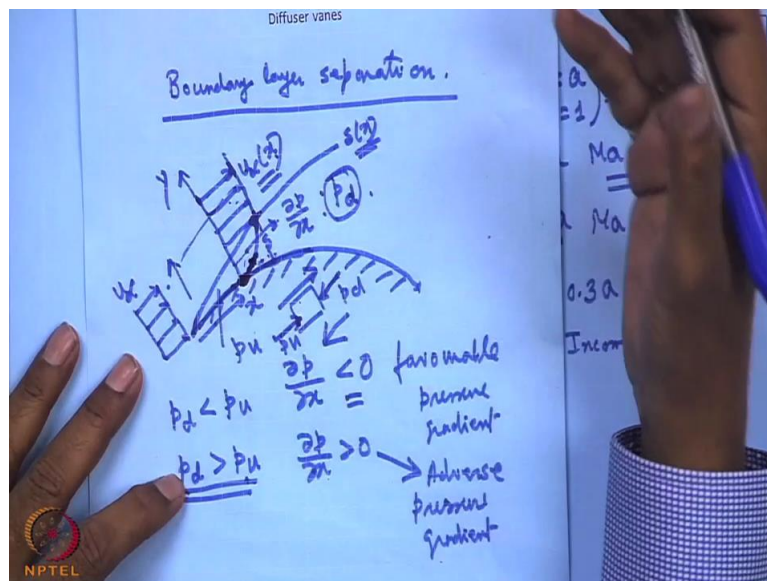 Diffuser vanes
Boundary layer separation.
δ(x)
Y
u∞(x)
∂p/∂x
pd
u∞
x
pu
pu
pd
pd < pu
∂p/∂x < 0
favourable pressure gradient
pd > pu
∂p/∂x > 0
Adverse pressure gradient
a
= 1)
Ma
Ma
0.3a
Incom
NPTEL